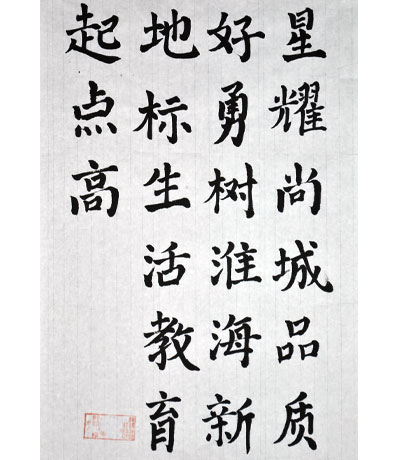 星耀尚城品质
好勇树淮海新
地标生活教育
起点高